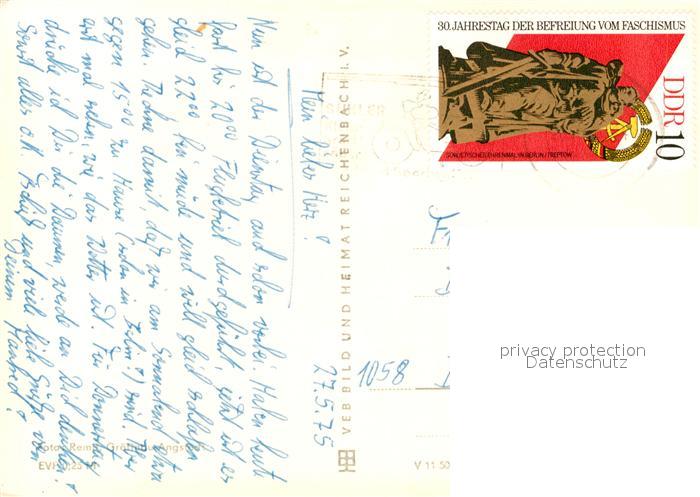 27.5.75
Mein lieber Herz!
Nun ist der Dienstag auch schon vorbei. Haben heute
fast bis 20⁰⁰ Flugbetrieb durchgeführt, jetzt ist es
gleich 22⁰⁰ bin müde und will gleich schlafen
gehen. Rechne damit, daß wir am Sonnabend schon
gegen 15⁰⁰ zu Hause (schon in Berlin?) sind. Aber
erst mal sehn, wie das Wetter ist. Für Donnerstag
drücke ich Dir die Daumen, werde an Dich denken!
Sonst alles o.k. Tschüß und viele liebe Grüße von
Deinem
VEB BILD UND HEIMAT REICHENBACH i. V.
30. JAHRESTAG DER BEFREIUNG VOM FASCHISMUS
DDR 10
SOWJETISCHES EHRENMAL IN BERLIN / TREPTOW
1058
privacy protection
Datenschutz
V 11 50